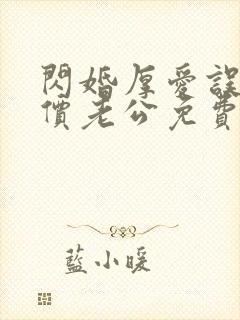 閃婚厚愛誤
價老公免費
藍小暖